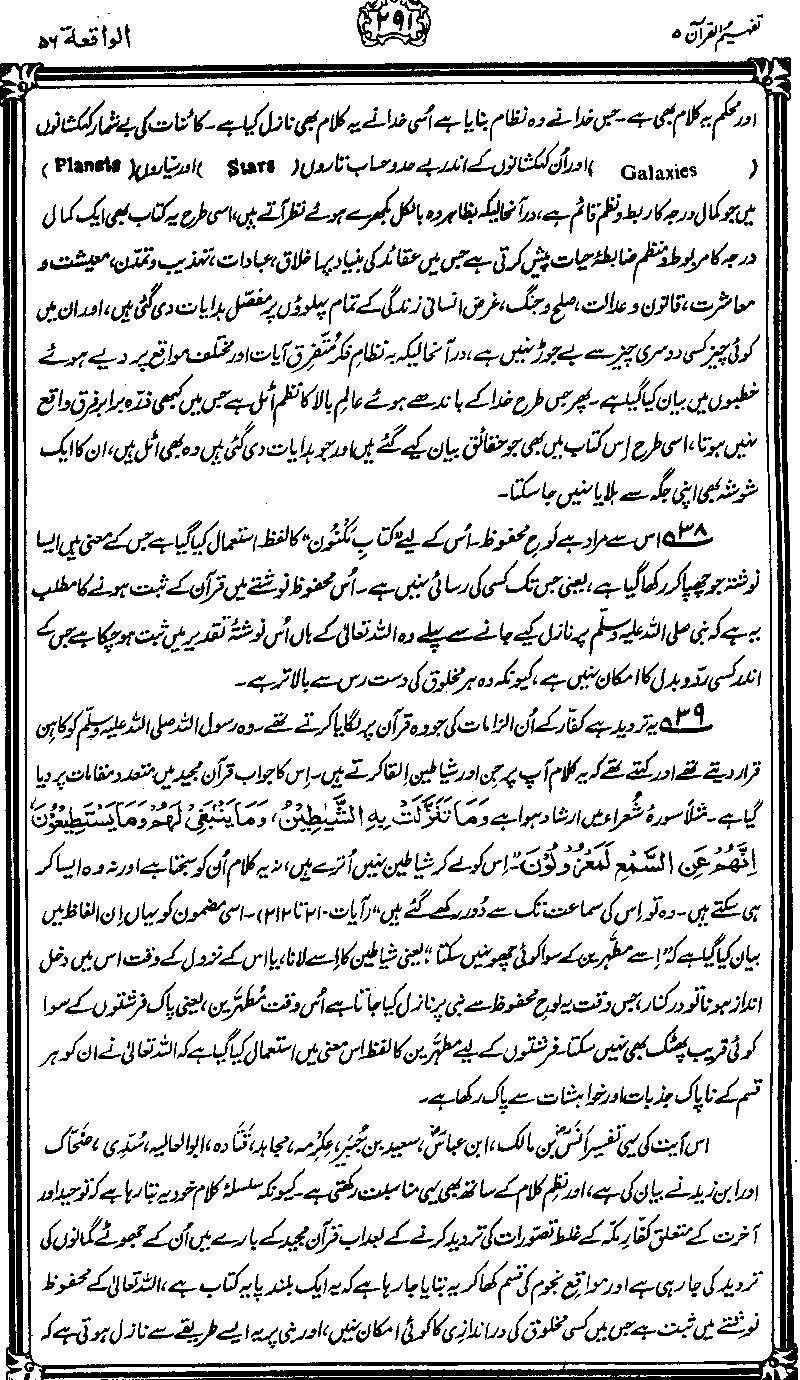 تفہیم القرآن ۵
۲۹۱
الواقعة ۵۶
اور محکم یہ کلام بھی ہے۔ جس خدا نے وہ نظام بنایا ہے اُسی خدا نے یہ کلام بھی نازل کیا ہے۔ کائنات کی بے شمار کہکشانوں
( Galaxies ) اور اُن کہکشانوں کے اندر بے حدو حساب تاروں ( Stars ) اور سیّاروں (Planets)
میں جو کمال درجہ کا ربط و نظم قائم ہے، درآنحالیکہ بظاہر وہ بالکل بکھرے ہوئے نظر آتے ہیں، اسی طرح یہ کتاب بھی ایک کمال
درجہ کا مربوط و منظم ضابطۂ حیات پیش کرتی ہے جس میں عقائد کی بنیاد پر اخلاق، عبادات، تہذیب و تمدن، معیشت و
معاشرت، قانون و عدالت، صلح و جنگ، غرض انسانی زندگی کے تمام پہلوؤں پر مفصّل ہدایات دی گئی ہیں، اور ان میں
کوئی چیز کسی دوسری چیز سے بے جوڑ نہیں ہے، درآنحالیکہ یہ نظامِ فکر مُتفرِق آیات اور مختلف مواقع پر دیے ہوئے
خطبوں میں بیان کیا گیا ہے۔ پھر جس طرح خدا کے باندھے ہوئے عالمِ بالا کا نظم اٹل ہے جس میں کبھی ذرّہ برابر فرق واقع
نہیں ہوتا، اسی طرح اِس کتاب میں بھی جو حقائق بیان کیے گئے ہیں اور جو ہدایات دی گئی ہیں وہ بھی اٹل ہیں، ان کا ایک
شوشہ بھی اپنی جگہ سے ہلایا نہیں جا سکتا۔
۳۸ اس سے مراد ہے لوحِ محفوظ۔ اُس کے لیے "کتابِ مَکْنُون" کا لفظ استعمال کیا گیا ہے جس کے معنی ہیں ایسا
نوشتہ جو چھپا کر رکھا گیا ہے، یعنی جس تک کسی کی رسائی نہیں ہے۔ اُس محفوظ نوشتے میں قرآن کے ثبت ہونے کا مطلب
یہ ہے کہ نبی صلی اللہ علیہ وسلّم پر نازل کیے جانے سے پہلے وہ اللہ تعالیٰ کے ہاں اُس نوشتۂ تقدیر میں ثبت ہو چکا ہے جس کے
اندر کسی ردّ و بدل کا امکان نہیں ہے، کیونکہ وہ ہر مخلوق کی دست رس سے بالاتر ہے۔
۳۹ یہ تردید ہے کفار کے اُن الزامات کی جو وہ قرآن پر لگایا کرتے تھے۔ وہ رسول اللہ صلی اللہ علیہ وسلّم کو کاہن
قرار دیتے تھے اور کہتے تھے کہ یہ کلام آپ پر جن اور شیاطین القا کرتے ہیں۔ اِس کا جواب قرآن مجید میں متعدد مقامات پر دیا
گیا ہے۔ مثلاً سورۂ شُعراء میں ارشاد ہوا ہے وَمَا تَنَزَّلَتْ بِهِ الشَّيٰطِيْنُ، وَمَا يَنْبَغِيْ لَهُمْ وَمَا يَسْتَطِيْعُوْنَ،
اِنَّهُمْ عَنِ السَّمْعِ لَمَعْزُوْلُوْنَ۔ "اِس کو لے کر شیاطین نہیں اُترے ہیں، نہ یہ کلام اُن کو سجتا ہے اور نہ وہ ایسا کر
ہی سکتے ہیں۔ وہ تو اِس کی سماعت تک سے دُور رکھے گئے ہیں" (آیات۔ ۲۱۰ تا ۲۱۲)۔ اسی مضمون کو یہاں اِن الفاظ میں
بیان کیا گیا ہے کہ "اِسے مطہّرین کے سوا کوئی چھو نہیں سکتا"، یعنی شیاطین کا اِسے لانا، یا اس کے نزول کے وقت اس میں دخل
انداز ہونا تو درکنار، جس وقت یہ لوح محفوظ سے نبی پر نازل کیا جاتا ہے اُس وقت مُطہّرین، یعنی پاک فرشتوں کے سوا
کوئی قریب پھٹک بھی نہیں سکتا۔ فرشتوں کے لیے مطہّرین کا لفظ اس معنی میں استعمال کیا گیا ہے کہ اللہ تعالیٰ نے ان کو ہر
قسم کے ناپاک جذبات اور خواہشات سے پاک رکھا ہے۔
اس آیت کی یہی تفسیر اَنسؓ بن مالک، ابن عباسؓ، سعید بن جُبیر، عِکْرِمہ، مجاہد، قَتادہ، ابوالعالیہ، سُدّی، ضَحّاک
اور ابن زید نے بیان کی ہے، اور نظمِ کلام کے ساتھ بھی یہی مناسبت رکھتی ہے۔ کیونکہ سلسلۂ کلام خود یہ بتا رہا ہے کہ توحید اور
آخرت کے متعلق کفارِ مکّہ کے غلط تصوّرات کی تردید کرنے کے بعد اب قرآن مجید کے بارے میں اُن کے جھوٹے گمانوں کی
تردید کی جا رہی ہے اور مواقعِ نجوم کی قسم کھا کر یہ بتایا جا رہا ہے کہ یہ ایک بلند پایہ کتاب ہے، اللہ تعالیٰ کے محفوظ
نوشتے میں ثبت ہے جس میں کسی مخلوق کی دراندازی کا کوئی امکان نہیں، اور نبی پر یہ ایسے طریقے سے نازل ہوتی ہے کہ